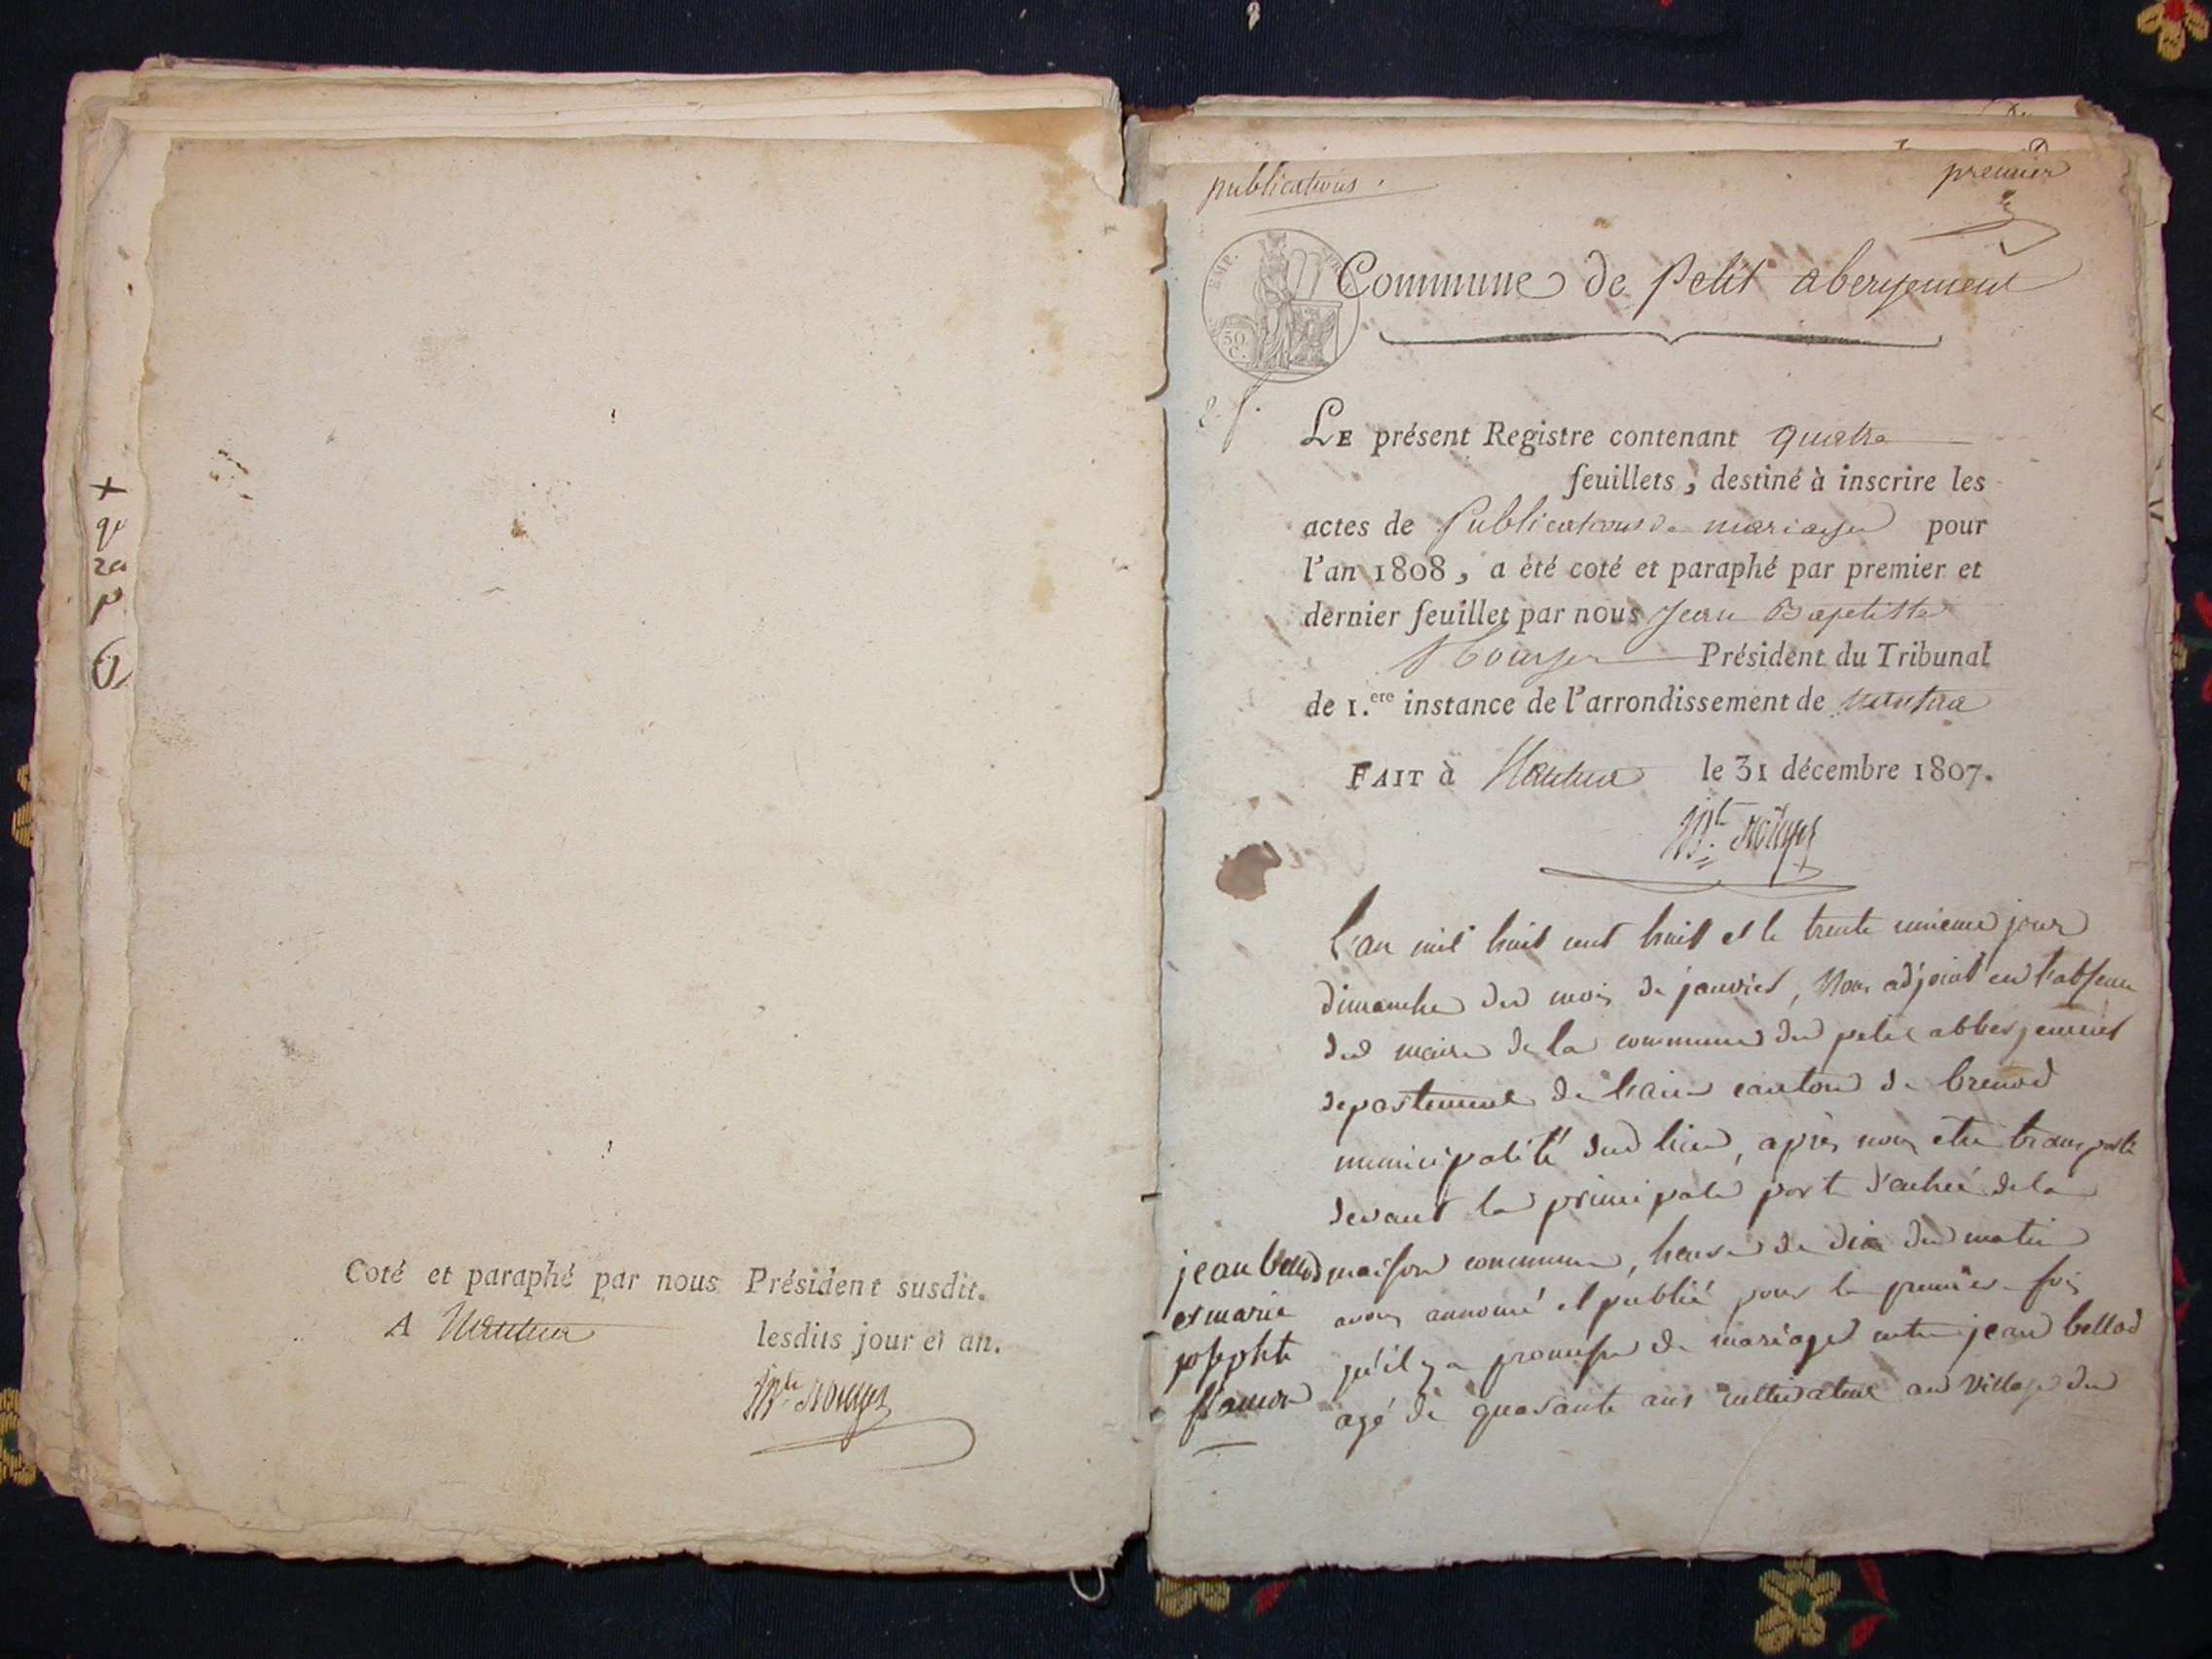 +
qu
za
po
Coté et paraphé par nous Président susdit.
A Nantua lesdits jour et an.
publications.
premier
EMP. FR
50 C.
Commune de petit abergement
LE présent Registre contenant quatre
feuillets, destiné à inscrire les
actes de Publications de mariages pour
l'an 1808, a été coté et paraphé par premier et
dernier feuillet par nous Jean Baptiste
Président du Tribunal
de 1.ere instance de l'arrondissement de Nantua
FAIT à Nantua le 31 décembre 1807.
L'an mil huit cent huit et le trente unieme jour
dimanche du mois de janvier, Nous adjoint en l'absence
du maire de la commune du petit abbergement
departement de l'ain canton de brenod
municipalité dud lieu, après nous etre transporté
devant la principale porte d'entrée de la
maison commune, heure de dix du matin
avons annoncé et publié pour la premiere fois
qu'il y a promesse de mariage entre jean bellod
agé de quarante ans cultivateur au village du
jean bellod
et marie
josephte